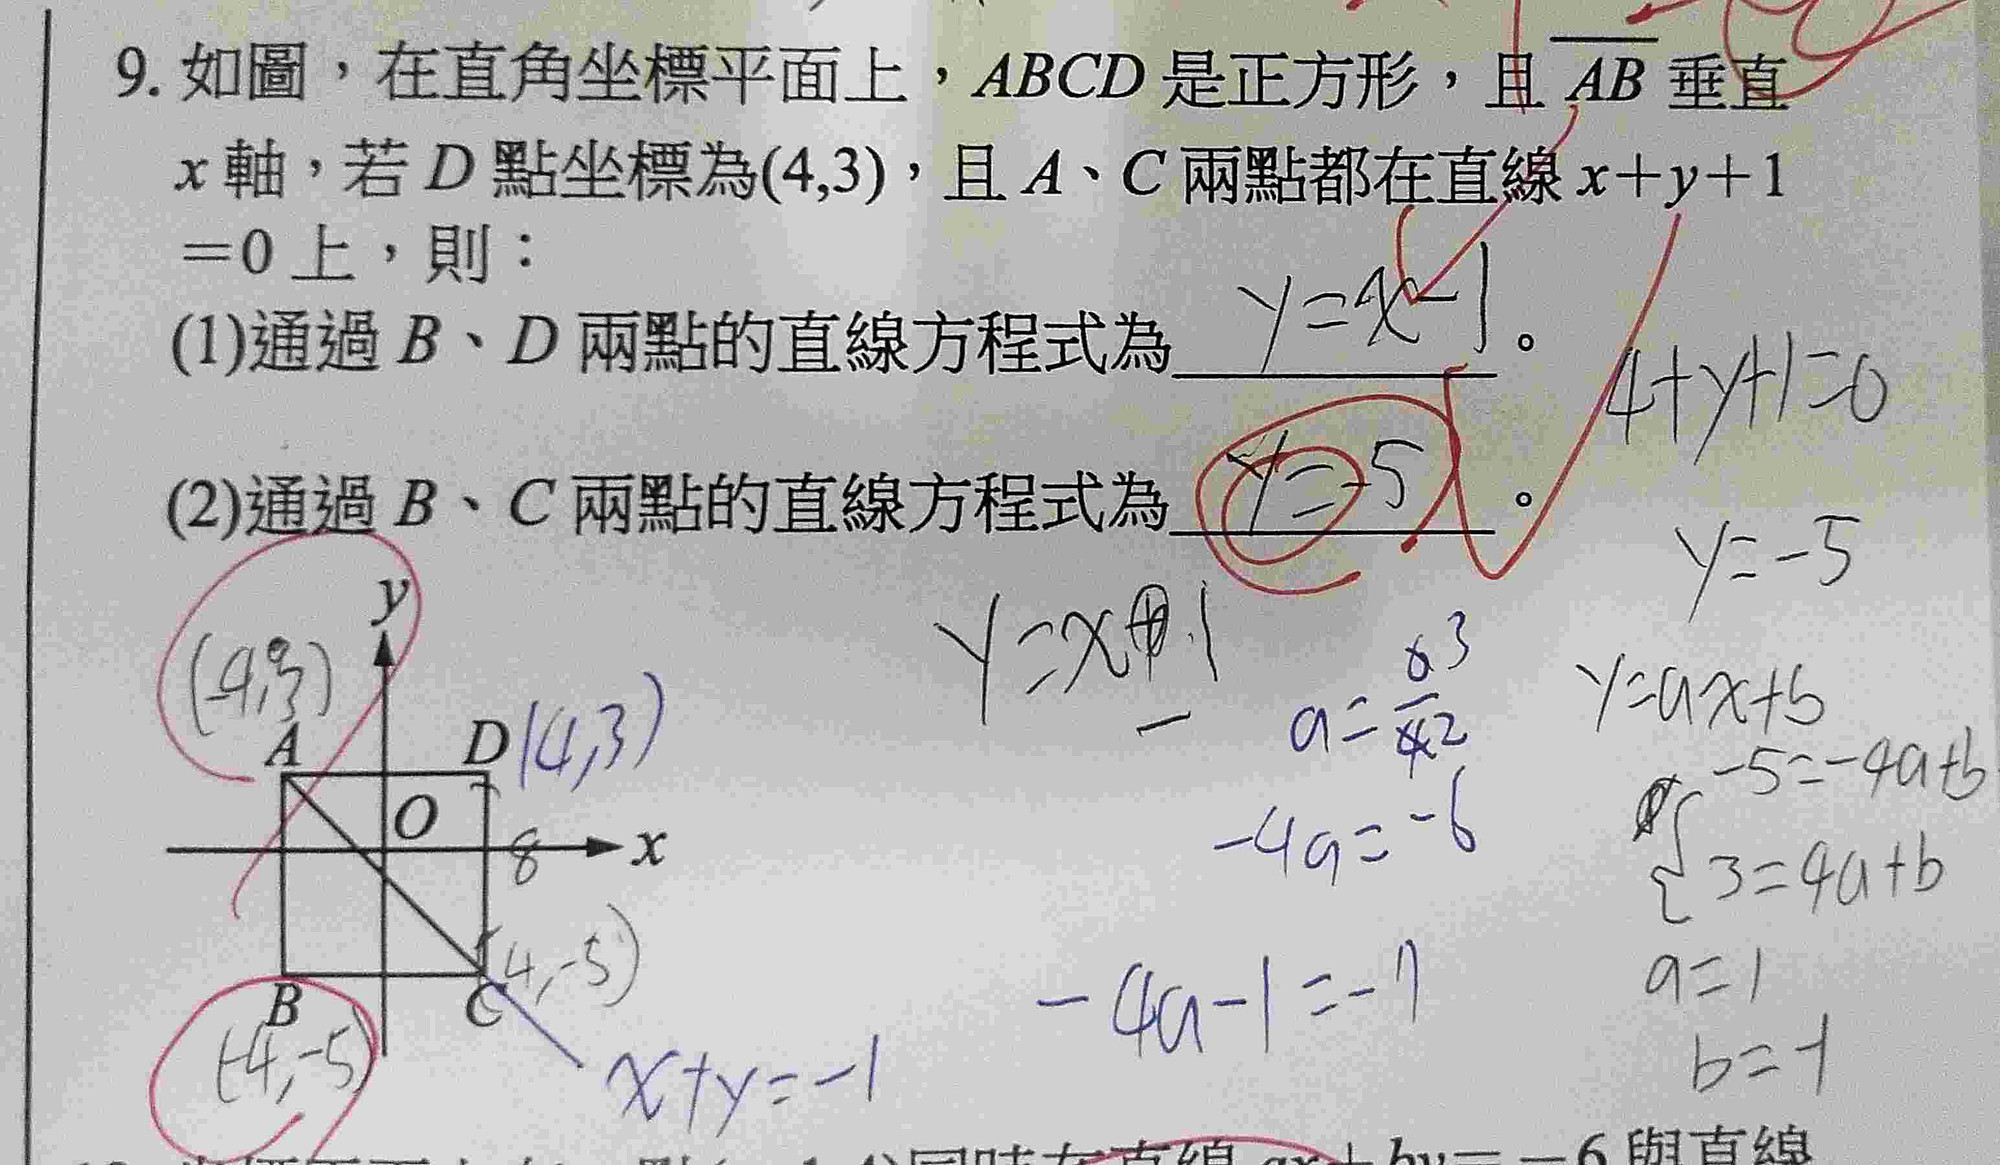 9. 如圖，在直角坐標平面上，ABCD 是正方形，且 AB 垂直
x 軸，若 D 點坐標為(4,3)，且 A、C 兩點都在直線 x+y+1
=0 上，則：
(1)通過 B、D 兩點的直線方程式為 y=x-1 。
4+y+1=0
(2)通過 B、C 兩點的直線方程式為 y=-5 。
y=-5
y
y=x+1
(-4,3)
a=
3
2
y=ax+b
A
D (4,3)
-5=-4a+b
O
x
8
-4a=-6
3=4a+b
(4,-5)
a=1
B
C
-4a-1=-7
(-4,-5)
x+y=-1
b=-1
直線 ax+by=-6 與直線